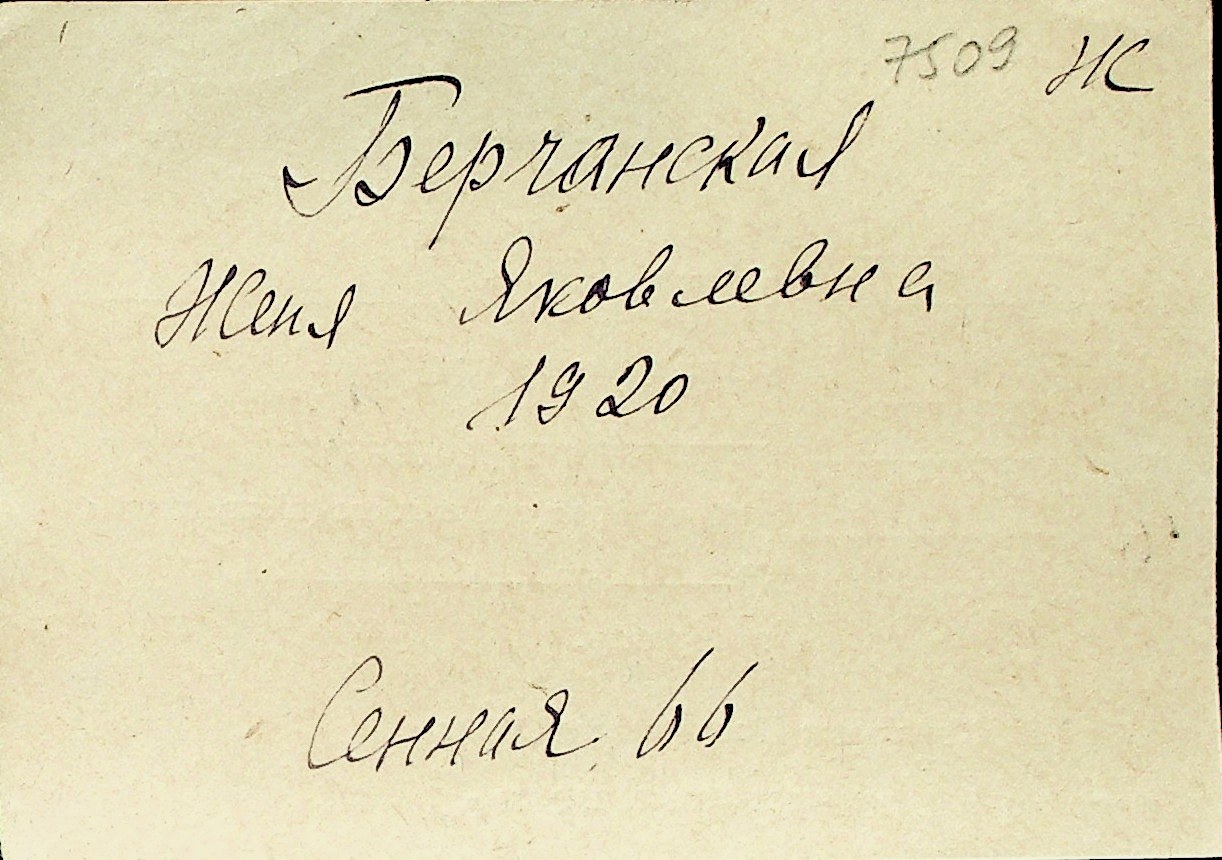 7509 Ж
Берчанская
Женя Яковлевна
1920
Сенная 66